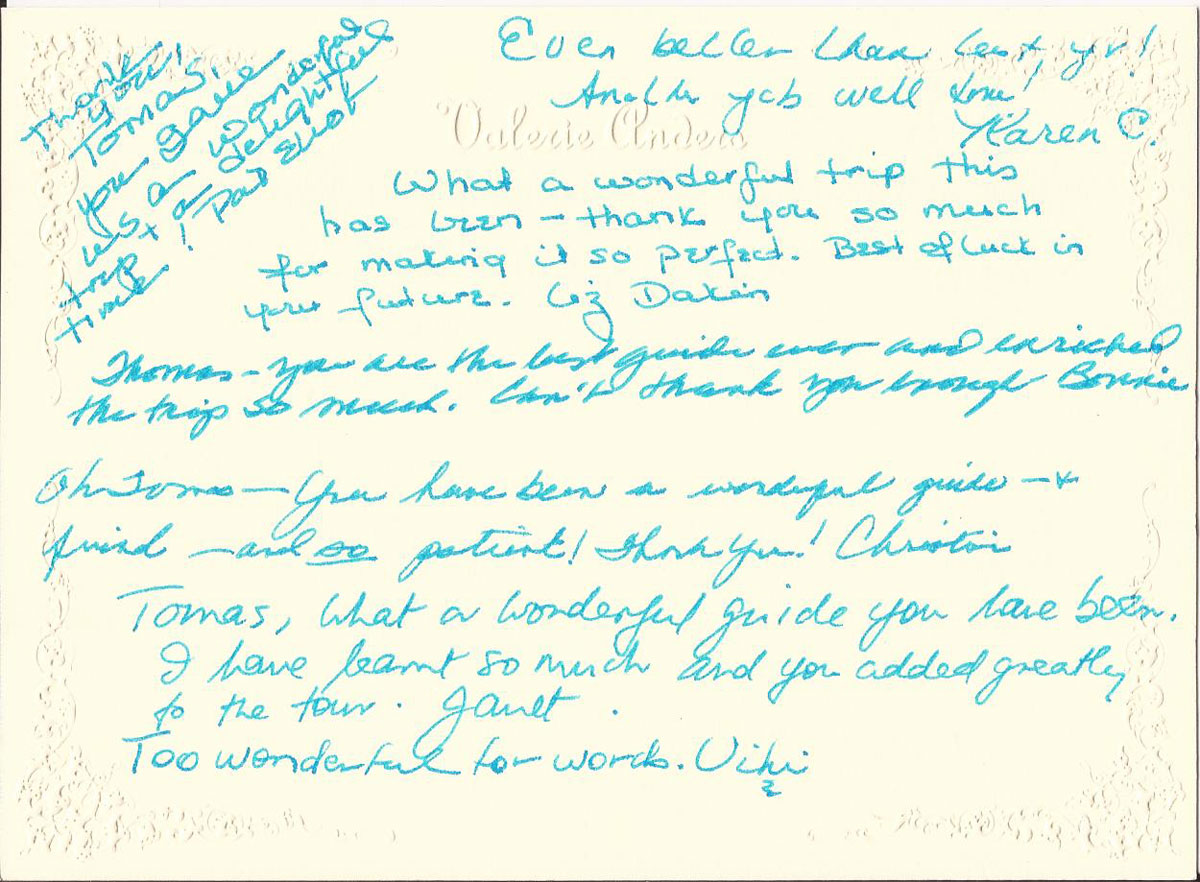 Thank
you!
Tomas.
you gave
us a wonderful
trip + a delightful
time! Pat Eliot
Even better than last yr!
Another job well done!
Karen C.
Valerie Anders
What a wonderful trip this
has been – thank you so much
for making it so perfect. Best of luck in
your future. Liz Dakin
Thomas – you are the best guide ever and enriched
the trip so much. Can't thank you enough Bonnie
Oh Tomas — You have been a wonderful guide — +
friend — and so patient! Thank You!
Tomas, What a wonderful guide you have been.
I have learnt so much and you added greatly
to the tour. Janet.
Too wonderful for words. Viki